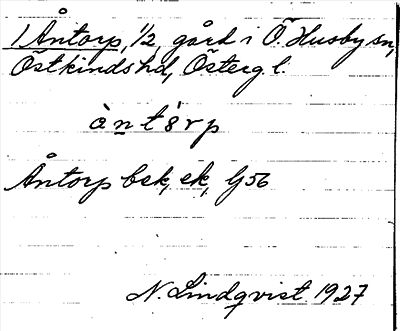 1 Åntorp, 1/2, gård i Ö. Husby sn,
Östkinds hd, Österg. l.
àntòrp
Åntorp bsk, ek, G56
N. Lindqvist 1927